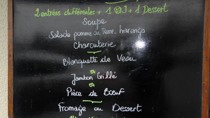 1 entrée différente + 1 PDJ + 1 Dessert
Soupe
Salade pomme de terre, harengs
Charcuterie
Blanquette de Veau
ou
Jambon Grillé
ou
Pièce de Bœuf
Fromage ou Dessert